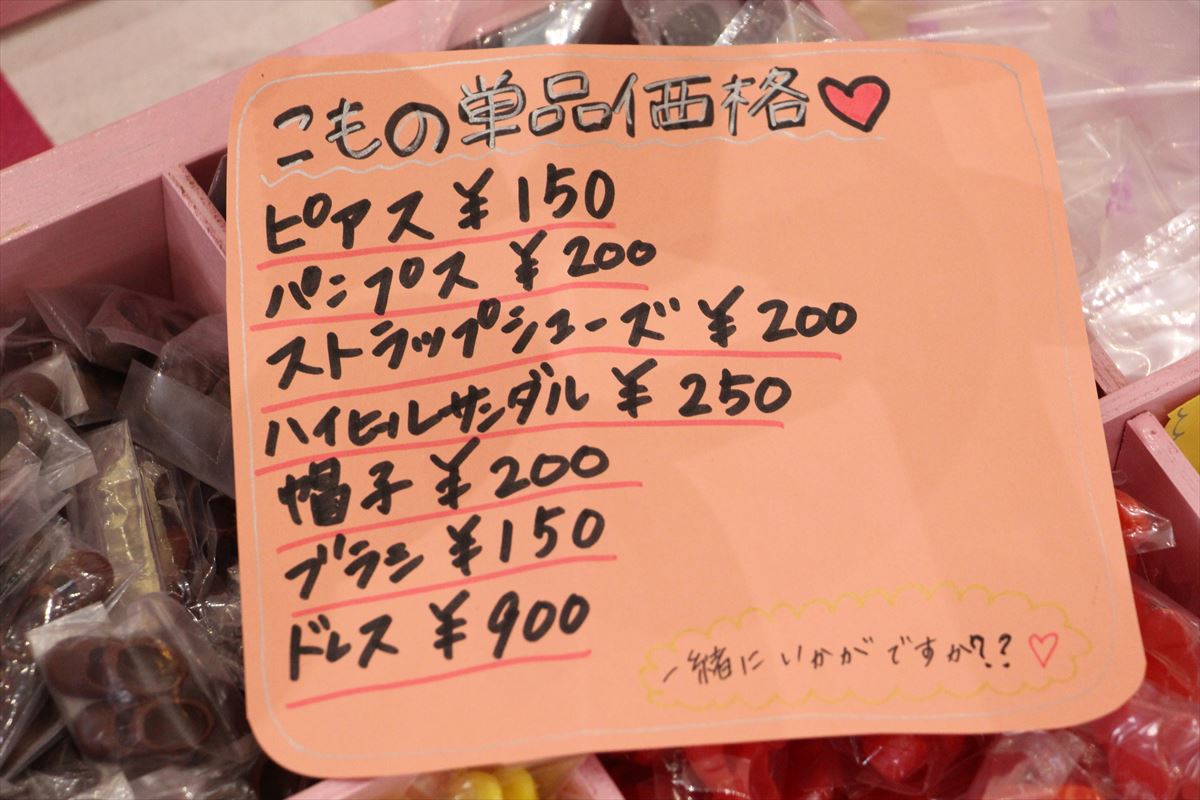 こもの単品価格♥
ピアス ¥150
パンプス ¥200
ストラップシューズ ¥200
ハイヒルサンダル ¥250
帽子 ¥200
ブラシ ¥150
ドレス ¥900
一緒にいかがですか?? ♡